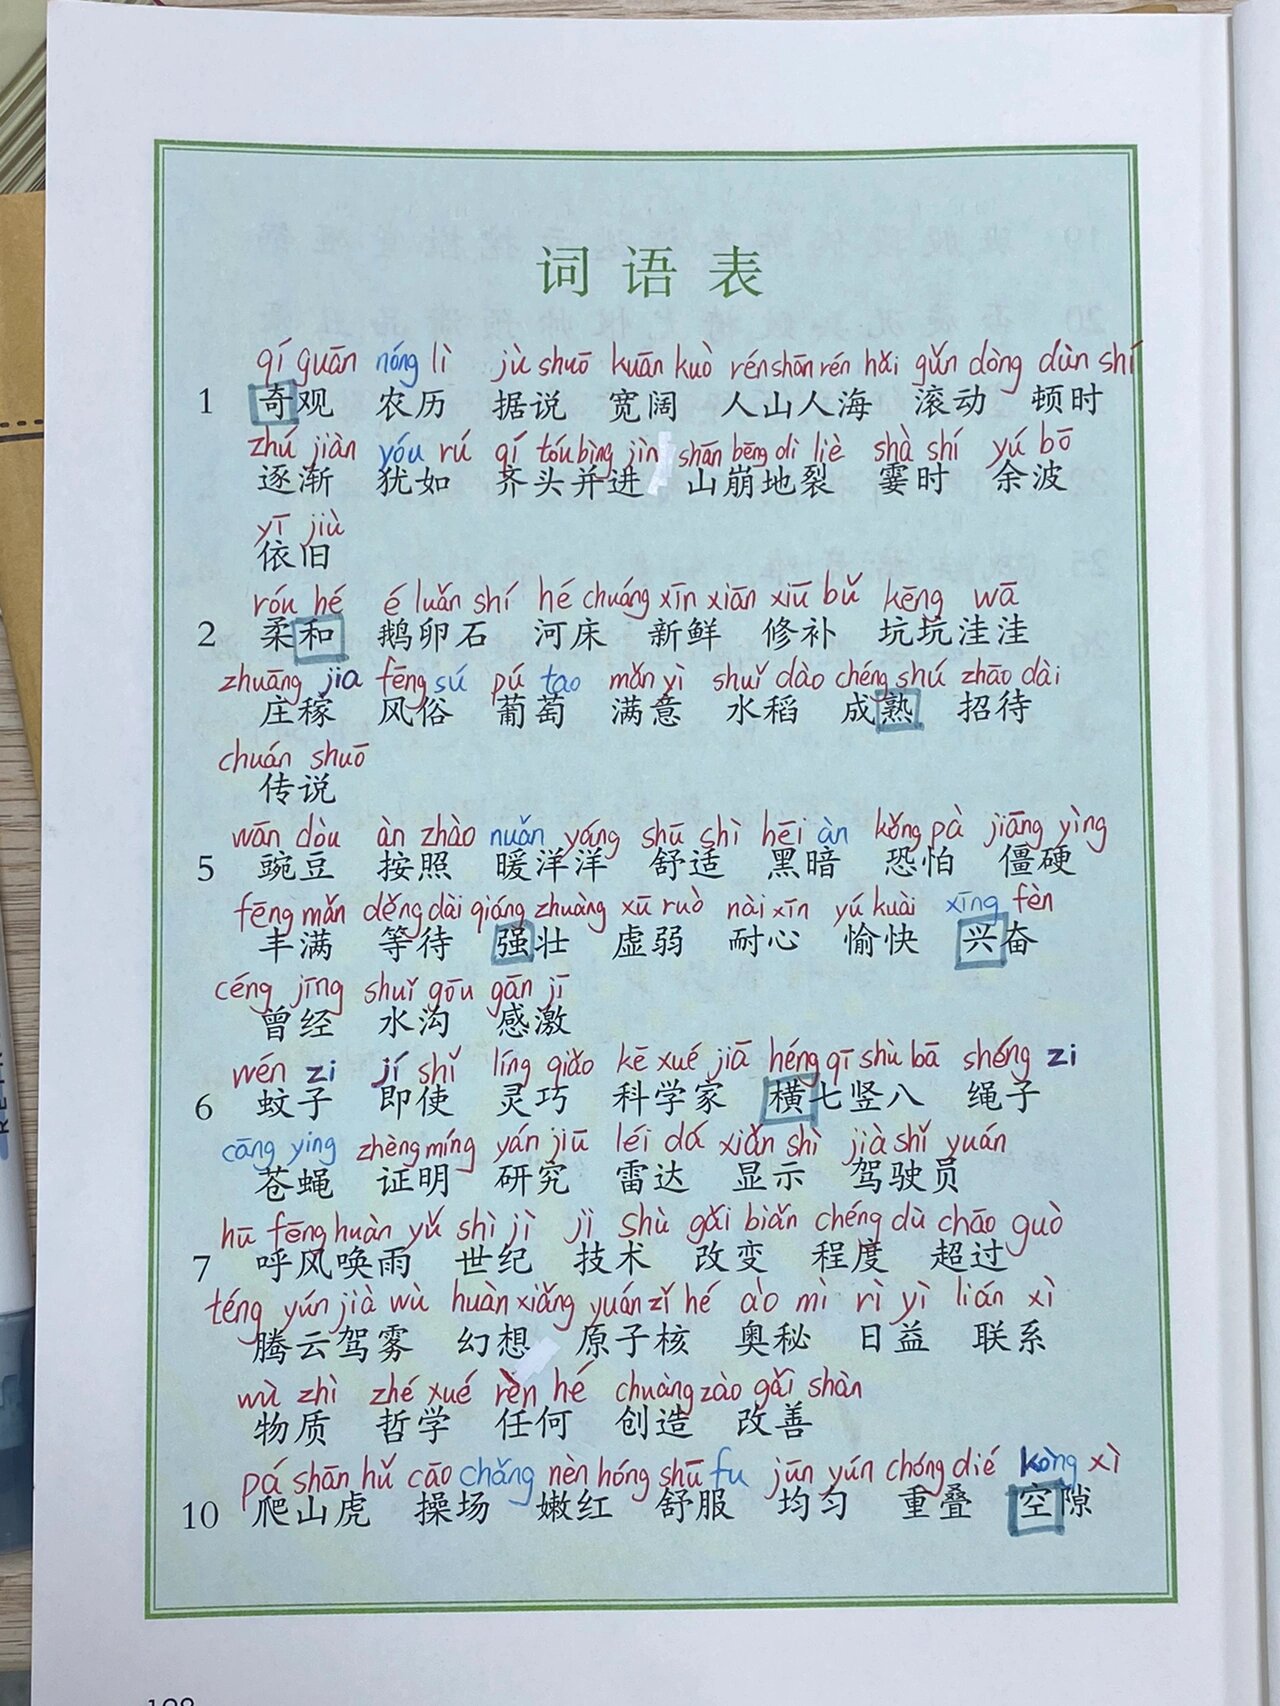 词语表
qí guān nóng lì jù shuō kuān kuò rén shān rén hǎi gǔn dòng dùn shí
1 奇观 农历 据说 宽阔 人山人海 滚动 顿时
zhú jiàn yóu rú qí tóu bìng jìn shān bēng dì liè shà shí yú bō
逐渐 犹如 齐头并进 山崩地裂 霎时 余波
yī jiù
依旧
róu hé é luǎn shí hé chuáng xīn xiān xiū bǔ kēng wā
2 柔和 鹅卵石 河床 新鲜 修补 坑坑洼洼
zhuāng jia fēng sú pú tao mǎn yì shuǐ dào chéng shú zhāo dài
庄稼 风俗 葡萄 满意 水稻 成熟 招待
chuán shuō
传说
wān dòu àn zhào nuǎn yáng shū shì hēi àn kǒng pà jiāng yìng
5 豌豆 按照 暖洋洋 舒适 黑暗 恐怕 僵硬
fēng mǎn děng dài qiáng zhuàng xū ruò nài xīn yú kuài xīng fèn
丰满 等待 强壮 虚弱 耐心 愉快 兴奋
céng jīng shuǐ gōu gān jī
曾经 水沟 感激
wén zi jí shǐ líng qiǎo kē xué jiā héng qī shù bā shéng zi
6 蚊子 即使 灵巧 科学家 横七竖八 绳子
cāng ying zhèng míng yán jiū léi dá xiǎn shì jià shǐ yuán
苍蝇 证明 研究 雷达 显示 驾驶员
hū fēng huàn yǔ shì jì jì shù gǎi biǎn chéng dù chāo guò
7 呼风唤雨 世纪 技术 改变 程度 超过
téng yún jià wù huàn xiǎng yuán zǐ hé ào mì rì yì lián xì
腾云驾雾 幻想 原子核 奥秘 日益 联系
wù zhì zhé xué rèn hé chuàng zào gǎi shàn
物质 哲学 任何 创造 改善
pá shān hǔ cāo chǎng nèn hóng shū fu jūn yún chóng dié kòng xì
10 爬山虎 操场 嫩红 舒服 均匀 重叠 空隙